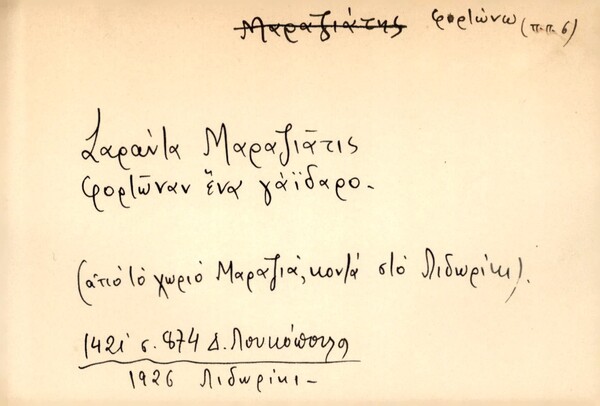 Μαραζιάτης φορτώνω (π.π. 6)
Σαράντα Μαραζιᾶτις
φορτῶναν ἕνα γάϊδαρο.
(ἀπό τό χωριό Μαραζιά, κοντά στό Λιδωρίκι).
1421 σ. 874 Δ. Λουκόπουλο
1926 Λιδωρίκι -